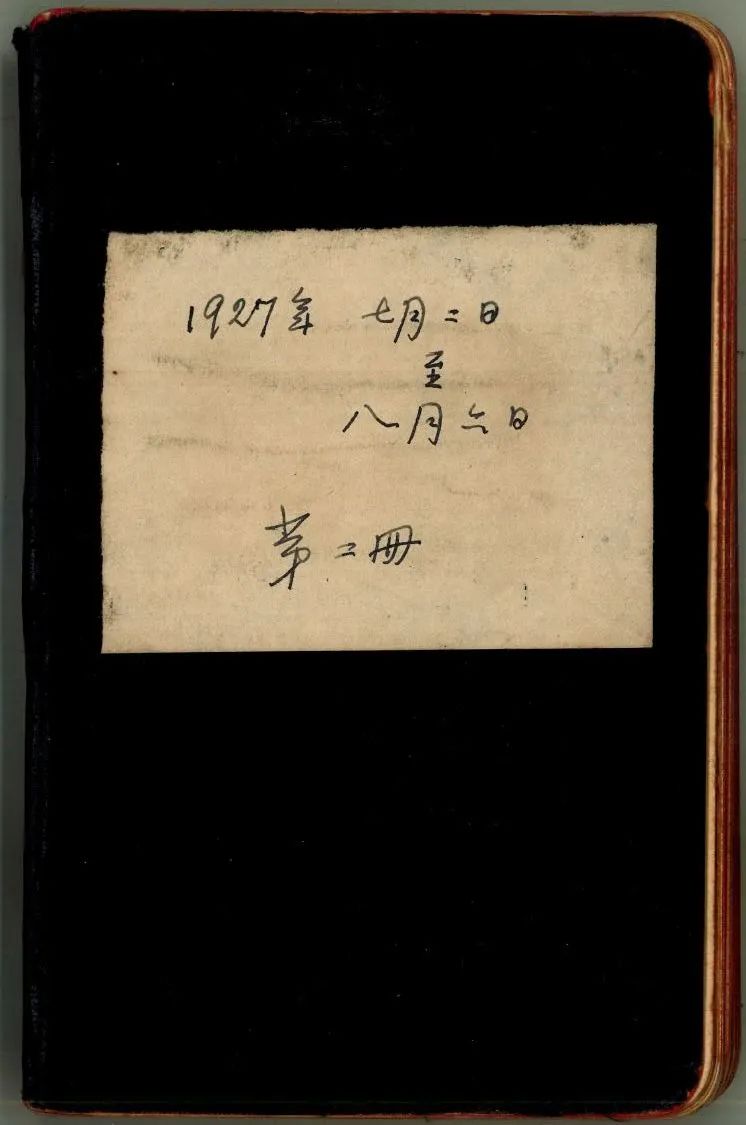 1927年 七月二日
至
八月六日
第二冊